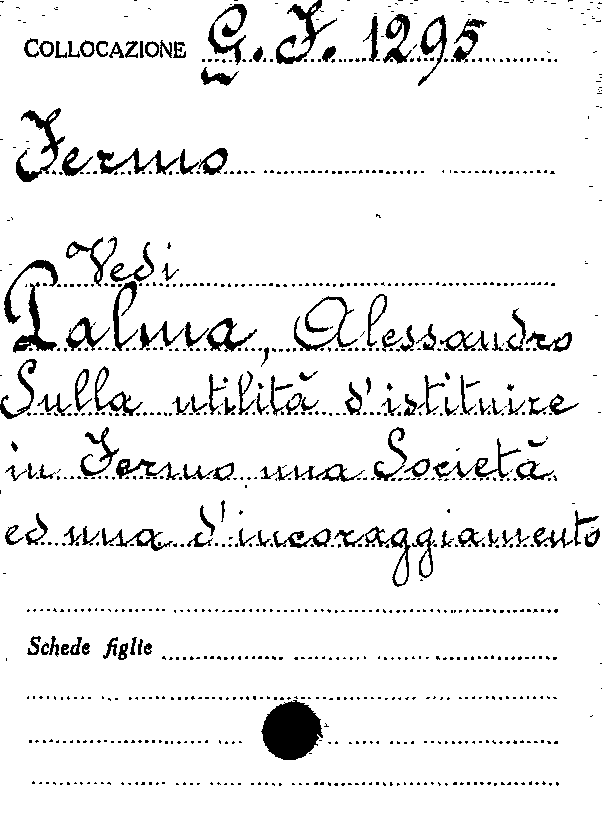 COLLOCAZIONE G. F. 1295
Fermo
Vedi
Palma, Alessandro
Sulla utilità d'istituire
in Fermo una Società
ed una d'incoraggiamento
Schede figlie